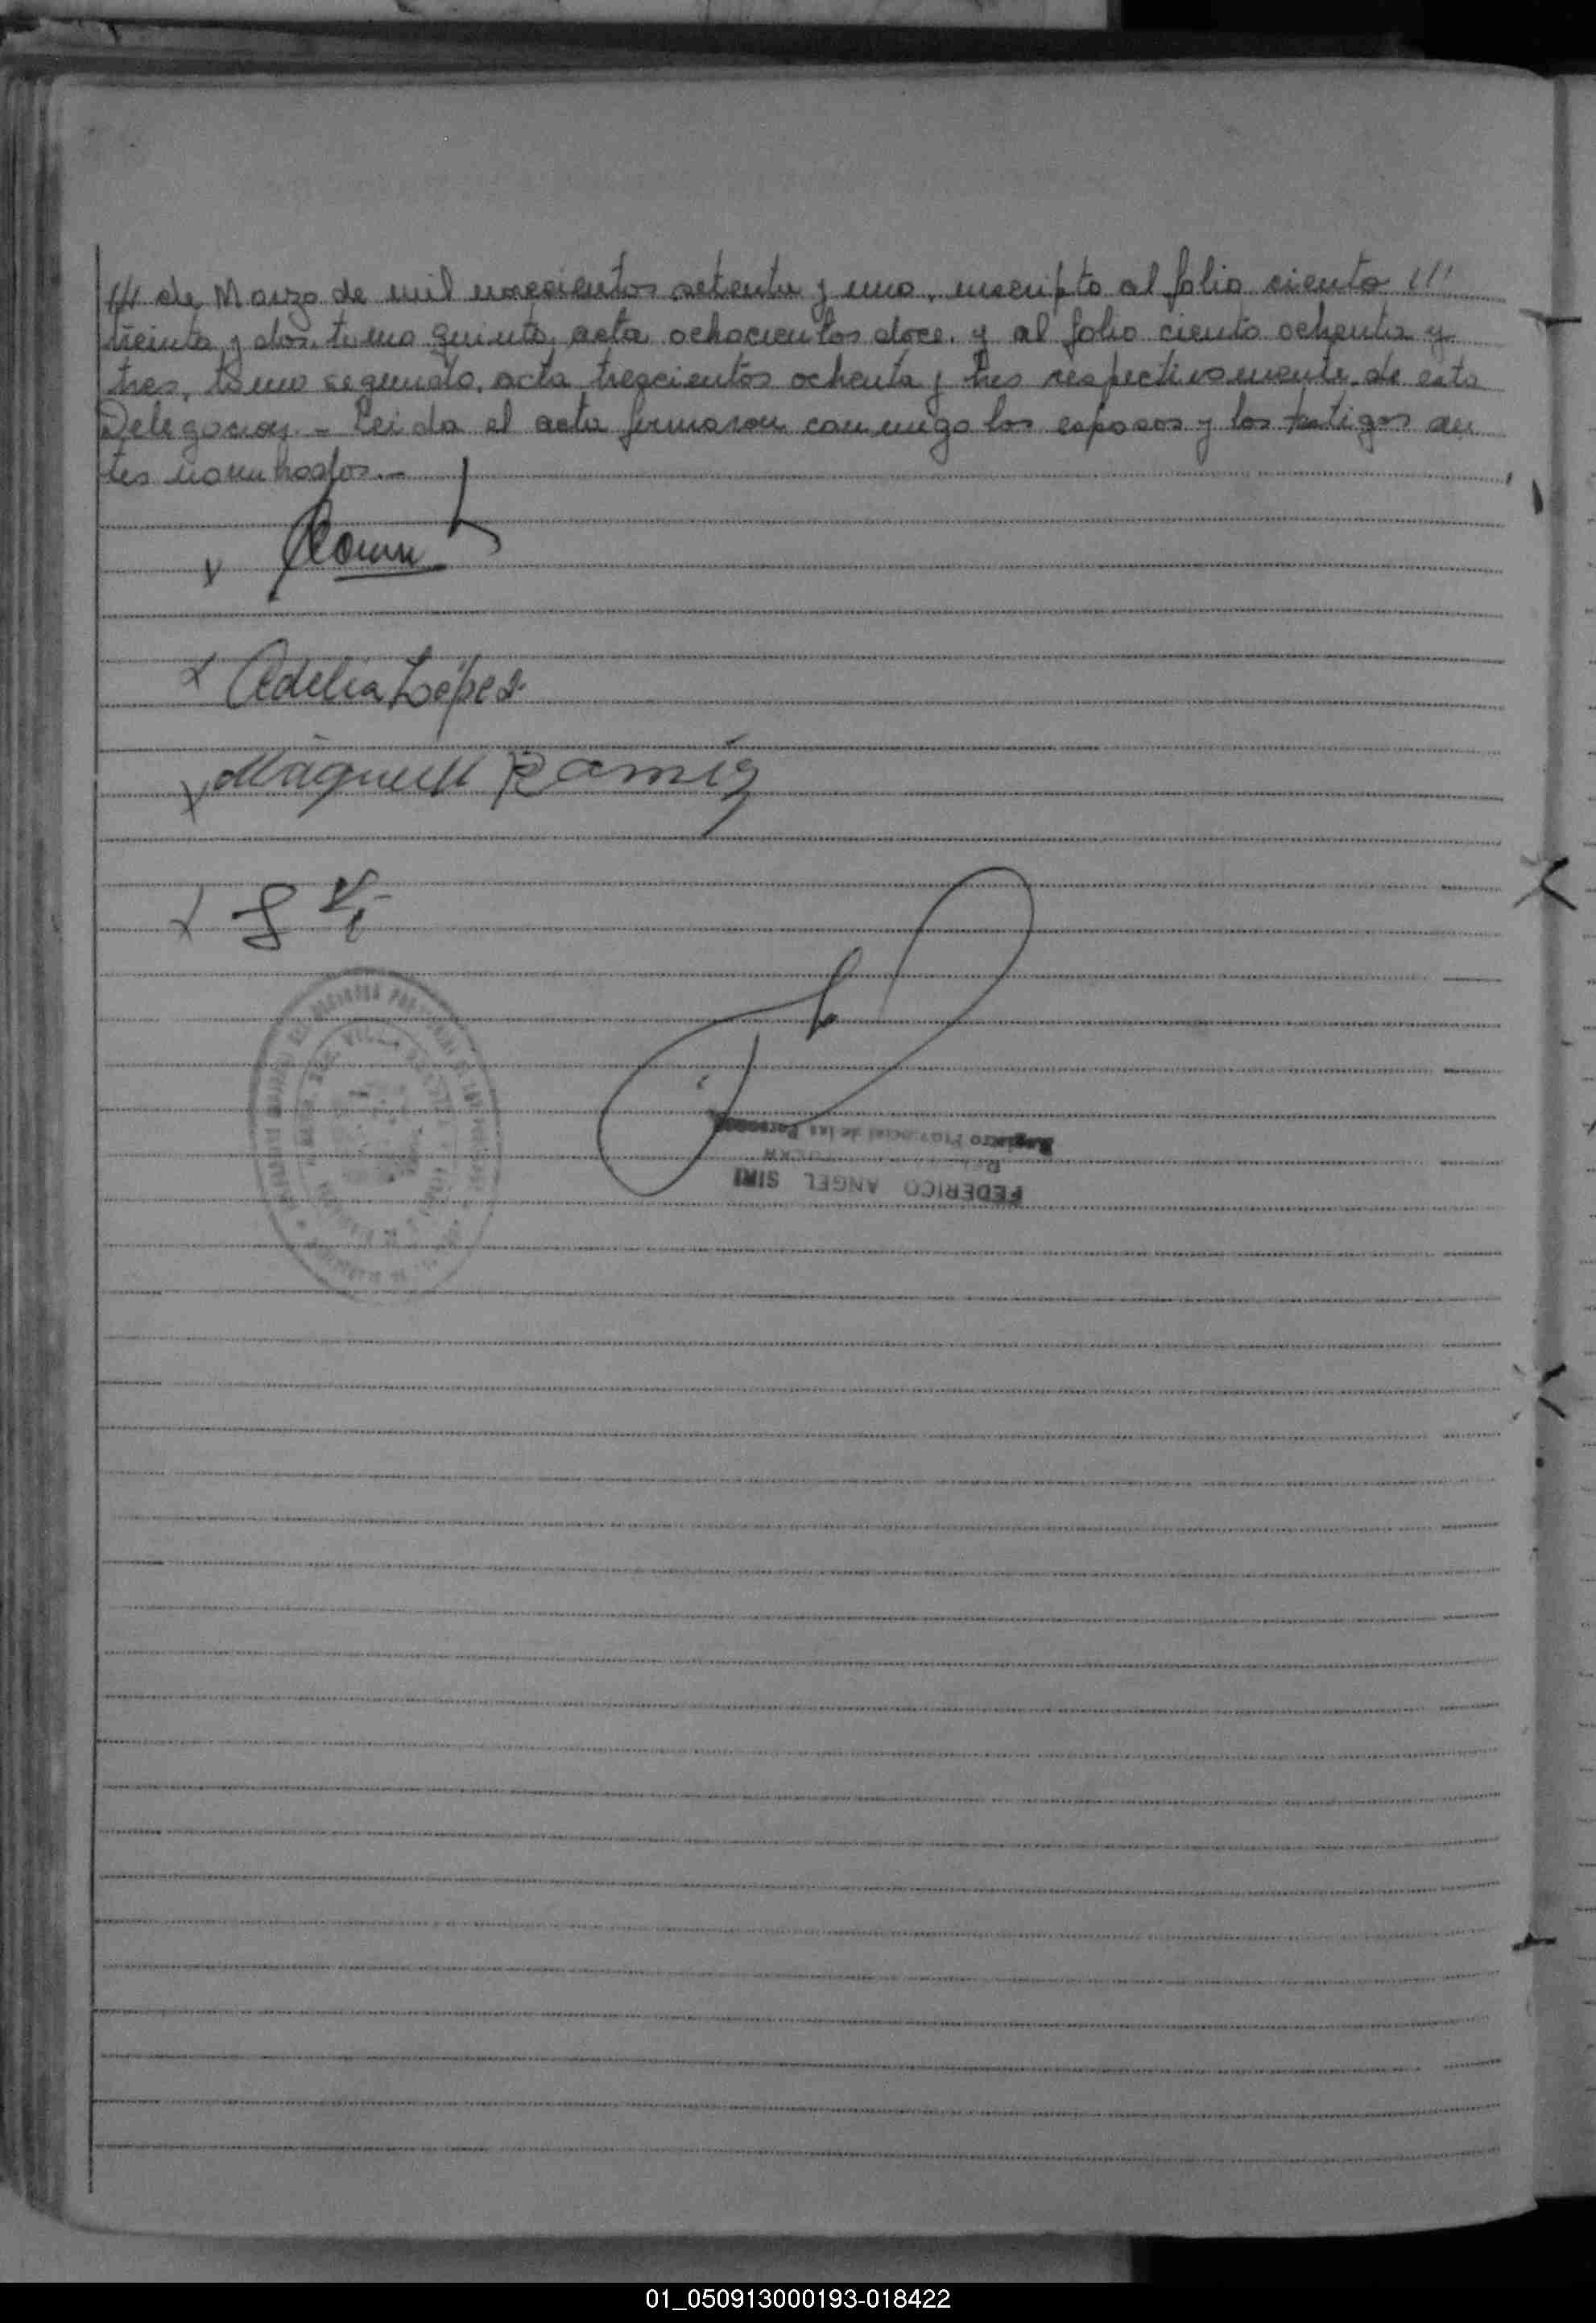 /// de Marzo de mil novecientos setenta y uno, inscripto al folio ciento ///
treinta y dos, tomo quinto, acta ochocientos doce, y al folio ciento ochenta y
tres, tomo segundo, acta trescientos ochenta y tres respectivamente, de esta
Delegacion - Leida el acta firmaron conmigo los esposos y los testigos an
tes nombrados.-
Adelia López
Ramíz
FEDERICO ANGEL SIRI
Registro Provincial de las Personas
01_050913000193-018422